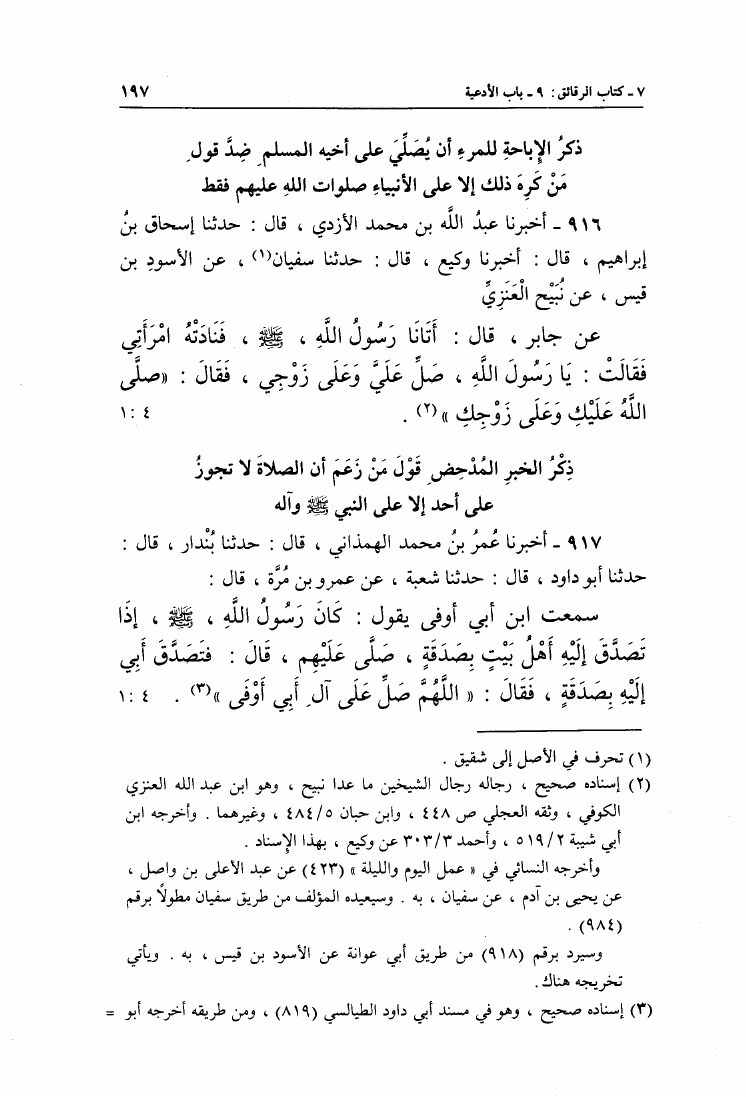 ٧ - كتاب الرقائق : ٩ - باب الأدعية ١٩٧
ذكرُ الإباحةِ للمرءِ أن يُصَلِّيَ على أخيه المسلمِ ضِدَّ قولِ
مَنْ كَرِهَ ذلك إلا على الأنبياءِ صلوات اللهِ عليهم فقط
٩١٦ - أخبرنا عبدُ اللَّه بن محمد الأزدي ، قال : حدثنا إسحاق بنُ
إبراهيم ، قال : أخبرنا وكيع ، قال : حدثنا سفيان(١) ، عن الأسودِ بن
قيس ، عن نُبَيْح الْعَنَزِيِّ
عن جابر ، قال : أَتَانَا رَسُولُ اللَّهِ ، ﷺ ، فَنَادَتْهُ امْرَأَتِي
فَقَالَتْ : يَا رَسُولَ اللَّهِ ، صَلِّ عَلَيَّ وَعَلَى زَوْجِي ، فَقَالَ : «صلَّى
اللَّهُ عَلَيْكِ وَعَلَى زَوْجِكِ »(٢) . ٤ :١
ذِكْرُ الخبرِ المُدْحِضِ قَوْلَ مَنْ زَعَمَ أن الصلاةَ لا تجوزُ
على أحد إلا على النبي ﷺ وآله
٩١٧ - أخبرنا عُمرُ بنُ محمد الهمذاني ، قال : حدثنا بُنْدار ، قال :
حدثنا أبو داود ، قال : حدثنا شعبة ، عن عمرو بن مُرَّة ، قال :
سمعت ابن أبي أوفى يقول : كَانَ رَسُولُ اللَّهِ ، ﷺ ، إذَا
تَصَدَّقَ إلَيْهِ أَهْلُ بَيْتٍ بِصَدَقَةٍ ، صَلَّى عَلَيْهِم ، قَالَ : فتَصَدَّقَ أَبِي
إلَيْهِ بِصَدَقَةٍ ، فَقَالَ : « اللَّهُمَّ صَلِّ عَلَى آلِ أَبِي أَوْفَى »(٣) . ٤ :١
(١) تحرف في الأصل إلى شقيق .
(٢) إسناده صحيح ، رجاله رجال الشيخين ما عدا نبيح ، وهو ابن عبد الله العنزي
الكوفي ، وثقه العجلي ص ٤٤٨ ، وابن حبان ٤٨٤/٥ ، وغيرهما . وأخرجه ابن
أبي شيبة ٥١٩/٢ ، وأحمد ٣٠٣/٣ عن وكيع ، بهذا الإسناد .
وأخرجه النسائي في « عمل اليوم والليلة » (٤٢٣) عن عبد الأعلى بن واصل ،
عن يحيى بن آدم ، عن سفيان ، به . وسيعيده المؤلف من طريق سفيان مطولًا برقم
(٩٨٤) .
وسيرد برقم (٩١٨) من طريق أبي عوانة عن الأسود بن قيس ، به . ويأتي
تخريجه هناك .
(٣) إسناده صحيح ، وهو في مسند أبي داود الطيالسي (٨١٩) ، ومن طريقه أخرجه أبو =